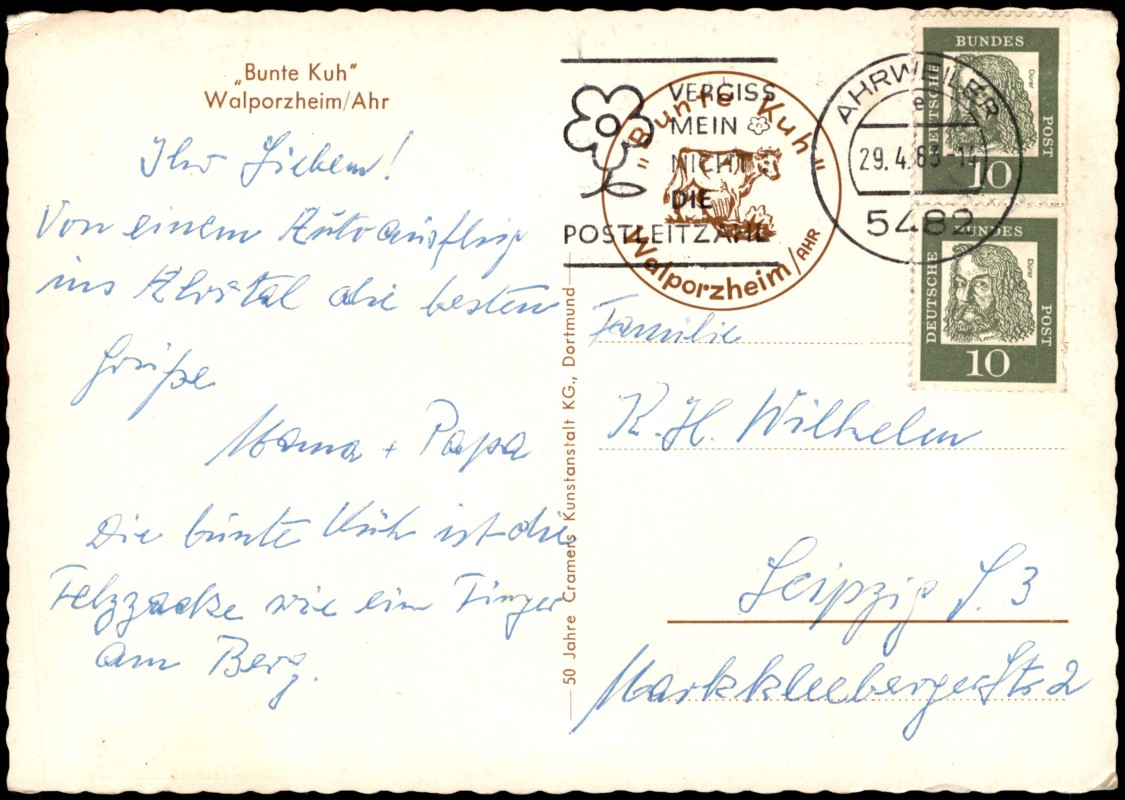 „Bunte Kuh"
Walporzheim/Ahr
Ihr Lieben!
Von einem Autoausflug
ins Ahrtal die besten
Grüße
Mama + Papa
Die bunte Kuh ist die
Felszacke wie ein Finger
am Berg.
50 Jahre Cramers Kunstanstalt KG., Dortmund
VERGISS
MEIN
NICHT
DIE
POSTLEITZAHL
"Bunte Kuh"
Walporzheim/AHR
AHRWEILER
e
29.4.63-17
5482
BUNDES
DEUTSCHE
POST
Dürer
10
BUNDES
DEUTSCHE
POST
Dürer
10
Familie
K. H. Wilhelm
Leipzig S. 3
Markkleeberger Str. 2